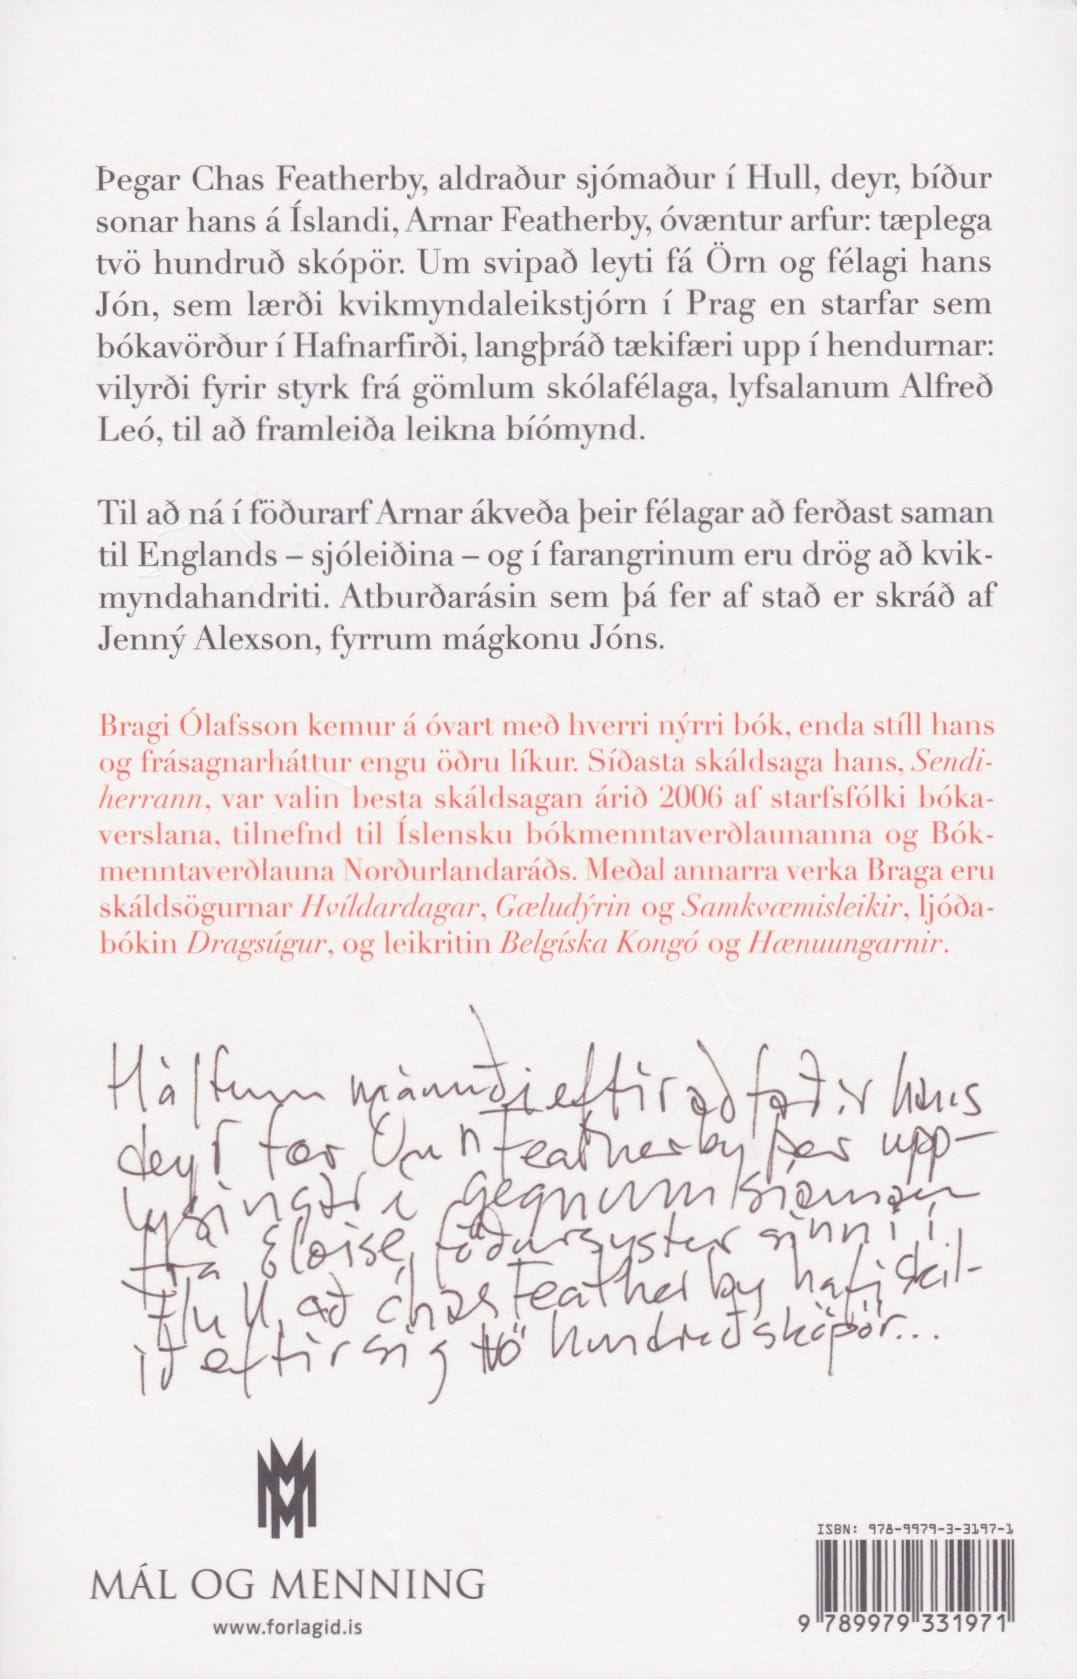 Þegar Chas Featherby, aldraður sjómaður í Hull, deyr, bíður
sonar hans á Íslandi, Arnar Featherby, óvæntur arfur: tæplega
tvö hundruð skópör. Um svipað leyti fá Örn og félagi hans
Jón, sem lærði kvikmyndaleikstjórn í Prag en starfar sem
bókavörður í Hafnarfirði, langþráð tækifæri upp í hendurnar:
vilyrði fyrir styrk frá gömlum skólafélaga, lyfsalanum Alfreð
Leó, til að framleiða leikna bíómynd.
Til að ná í föðurarf Arnar ákveða þeir félagar að ferðast saman
til Englands – sjóleiðina – og í farangrinum eru drög að kvik-
myndahandriti. Atburðarásin sem þá fer af stað er skráð af
Jenný Alexson, fyrrum mágkonu Jóns.
Bragi Ólafsson kemur á óvart með hverri nýrri bók, enda stíll hans
og frásagnarháttur engu öðru líkur. Síðasta skáldsaga hans, Sendi-
herrann, var valin besta skáldsagan árið 2006 af starfsfólki bóka-
verslana, tilnefnd til Íslensku bókmenntaverðlaunanna og Bók-
menntaverðlauna Norðurlandaráðs. Meðal annarra verka Braga eru
skáldsögurnar Hvíldardagar, Gæludýrin og Samkvæmisleikir, ljóða-
bókin Dragsúgur, og leikritin Belgíska Kongó og Hænuungarnir.
Hálfum mánuði eftir að faðir hans
deyr fær Örn Featherby þær upp-
lýsingar í gegnum símann
frá Eloise, föðursystur sinni í
Hull, að Chas Featherby hafi skil-
ið eftir sig tvö hundruð skópör...
MÁL OG MENNING
www.forlagid.is
ISBN: 978-9979-3-3197-1
9 789979 331971